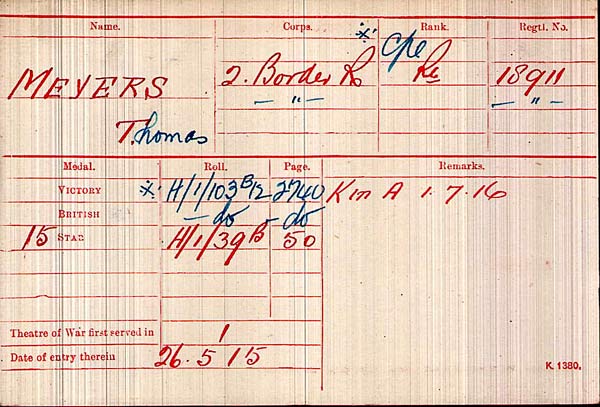 Name. Corps. Rank. Regtl. No.
※ Cpl
MEYERS 2. Border R Pte 18911
— " — — " —
Thomas
Medal. Roll. Page. Remarks.
VICTORY ※ H/1/103 B12 2740 K in A 1.7.16
BRITISH — do — do
15 STAR H/1/39 B 50
Theatre of War first served in 1
Date of entry therein 26.5.15
K. 1380.